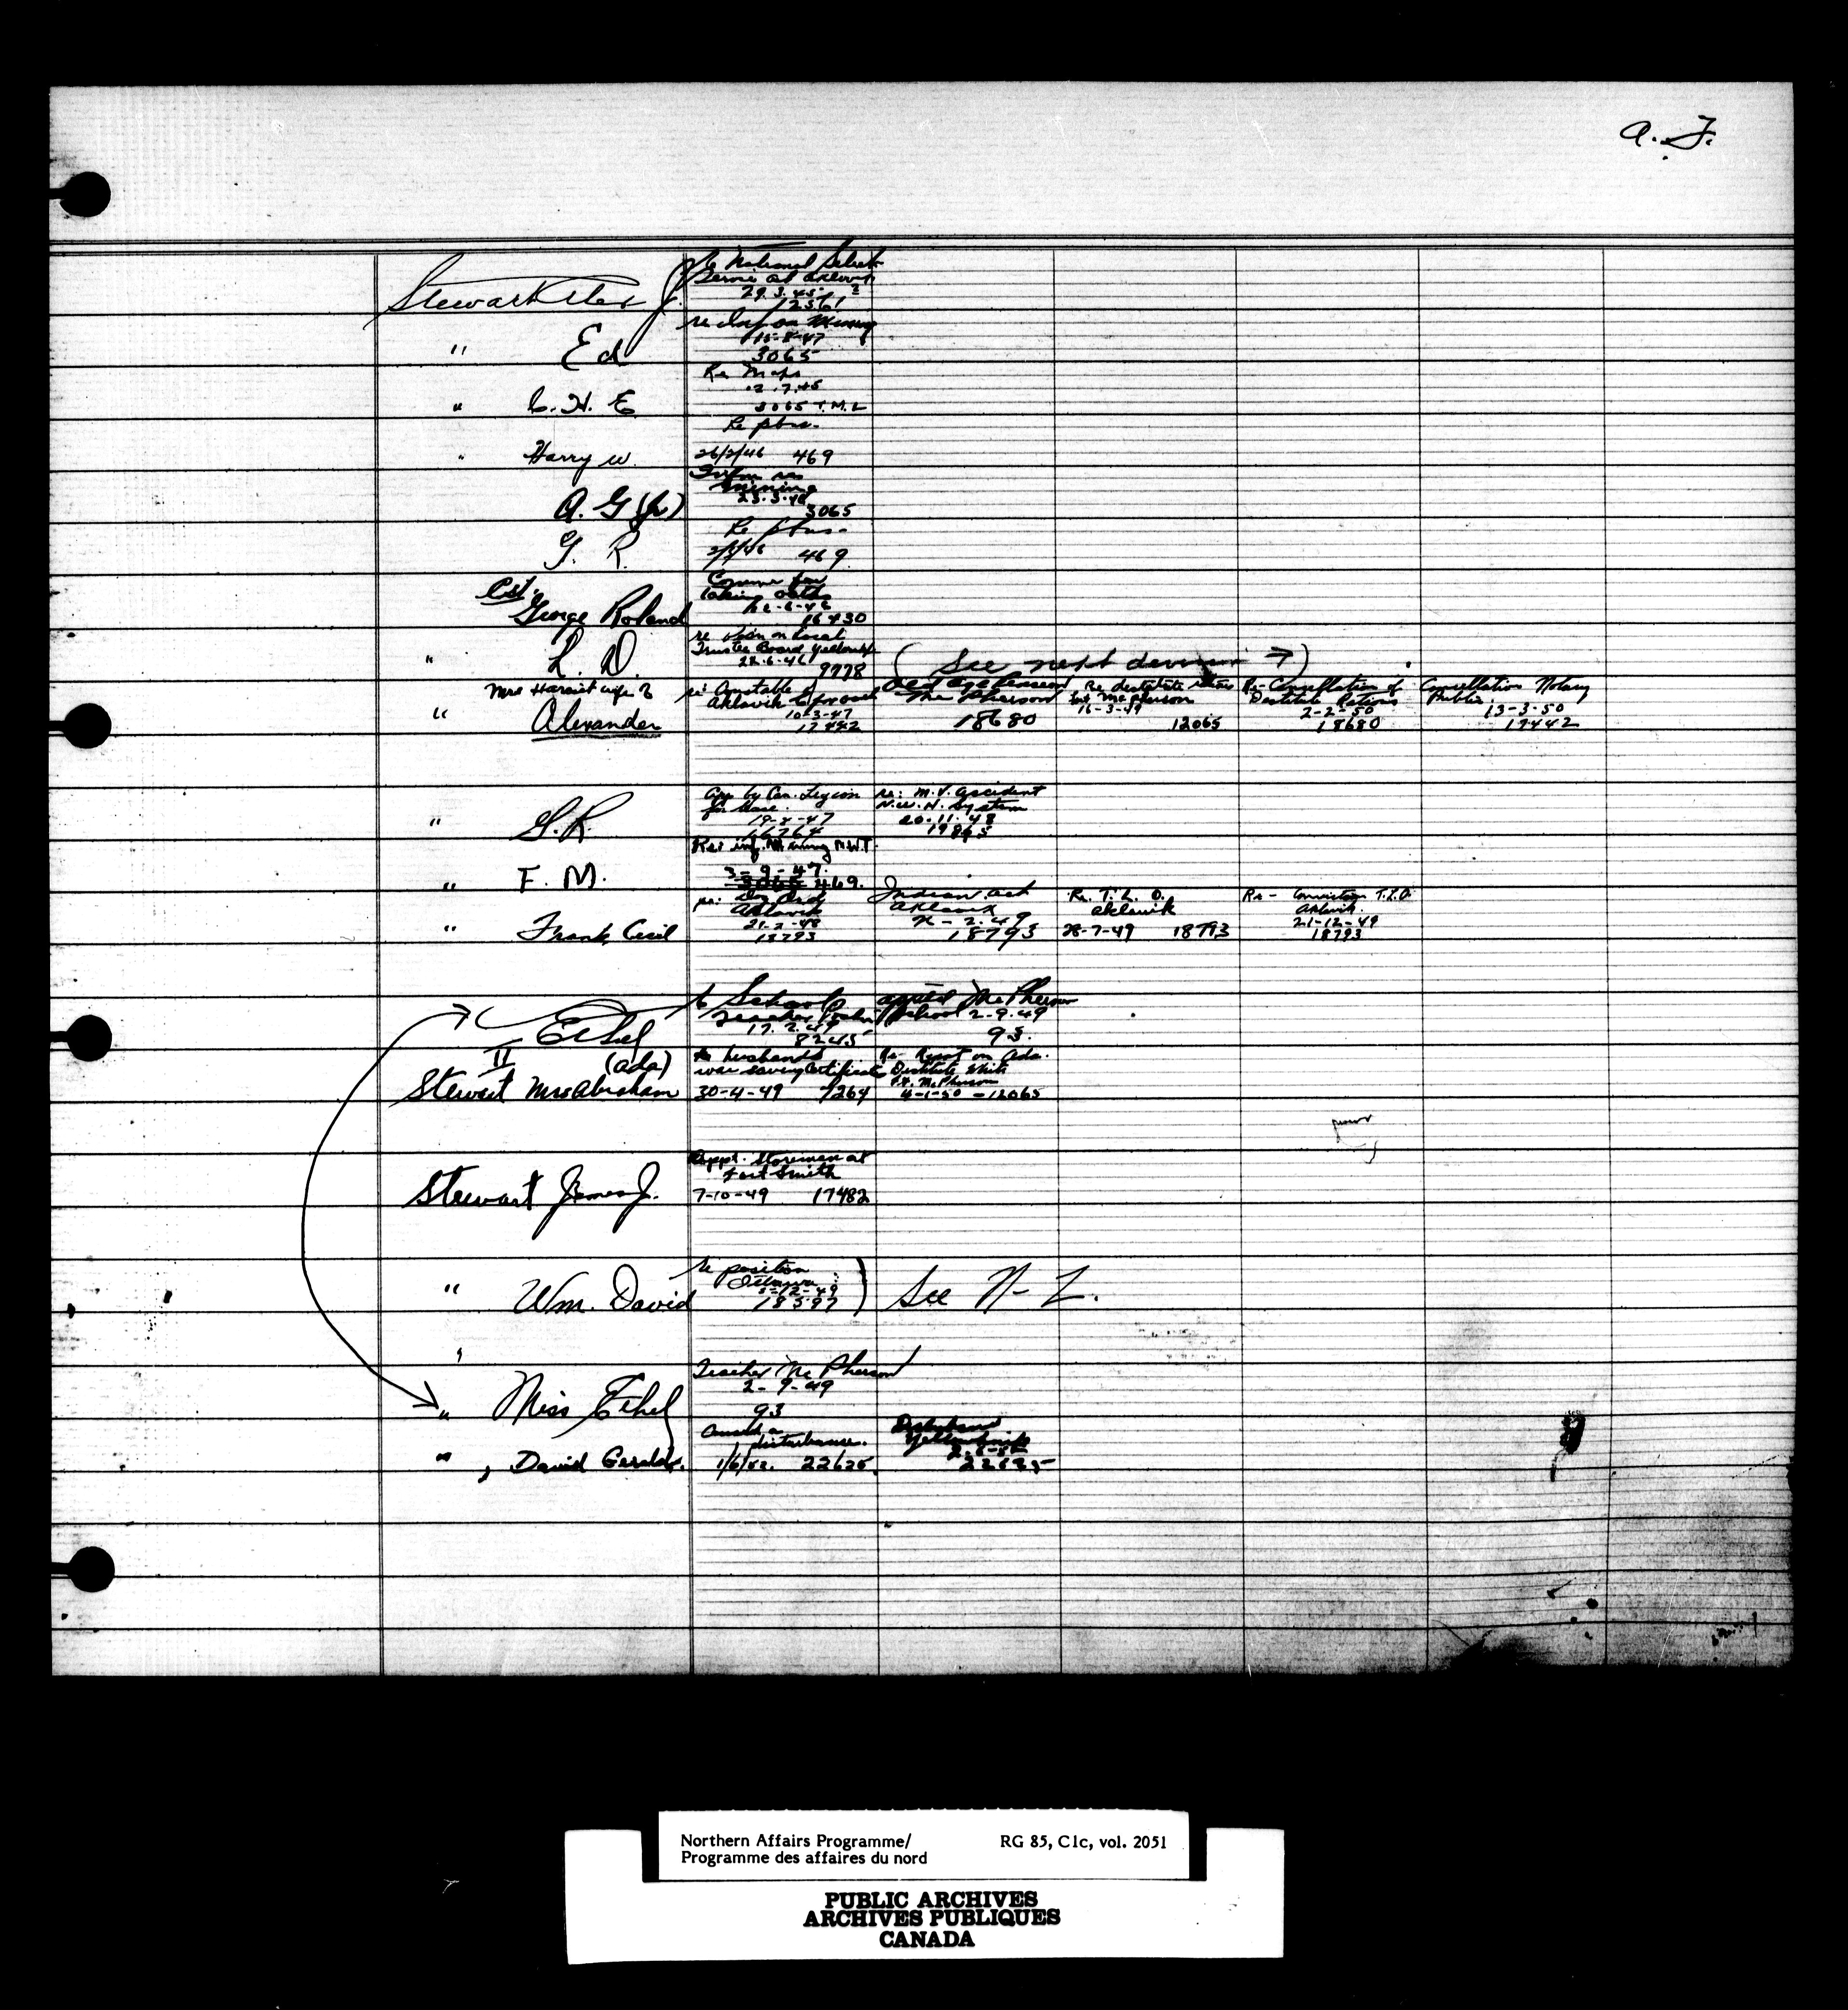 A. F.
Stewart Alex J.
to National Select
Service at Aklavik
29.3.45
12561
" Ed
re Inf on Mining
15-8-47
3065
" C. H. E
Re Maps
2.7.45
3065 T.M.L
" Harry W.
Re ptns.
26/2/46 469
A. G (Jr)
Inform re
Mining
25.3.46
3065
G. R.
Re ptns.
469
Cst.
George Roland
Comm for
taking oaths
12-6-46
16430
" L. D.
re on Local
Trustee Board Yellowkf
22.6.46 9778
( See next division → )
Mrs Harriet wife of
" Alexander
re: Constable
Aklavik
10-3-47
17442
Old Age Pension
McPherson
18680
Re destitute
Ft McPherson
16-3-49
12065
Re-Cancellation of
Destitute Rations
2-2-50
18680
Cancellation Notary
Public
13-3-50
17442
" G.R.
App by Can. Legion
for
19-2-47
16764
re: M.V. accident
N.W. H. System
20-11-48
19863
" F. M.
Re: inf. Mining N.W.T.
3-9-47.
3065 469.
" Frank Cecil
re: Dog Ord
Aklavik
21-2-48
18793
Indian act
Aklavik
2.49
18793
Re. T. L. O.
Aklavik
28-7-49 18793
Re - Conviction T.L.O.
Aklavik.
21-12-49
18793
Ethel
to School
Teacher
17.2.49
8245
applied McPherson
School 2-9-49
93.
II (Ada)
Stewart Mrs Abraham
to husband's
war saving certificate
30-4-49 7264
Re- Report on Ada.
Destitute White
Ft. McPherson
4-1-50 - 12065
Stewart James J.
Appt. Storeman at
Fort Smith
7-10-49 17482
" Wm. David
re position
Ottawa
-12-49
18597
) See N-Z.
" Miss Ethel
Teacher McPherson
2-9-49
93
" , David Gerald.
disturbance.
1/6/52. 22625.
Disturbance
Yellowknife
22625
Northern Affairs Programme/
Programme des affaires du nord
RG 85, C1c, vol. 2051
PUBLIC ARCHIVES
ARCHIVES PUBLIQUES
CANADA